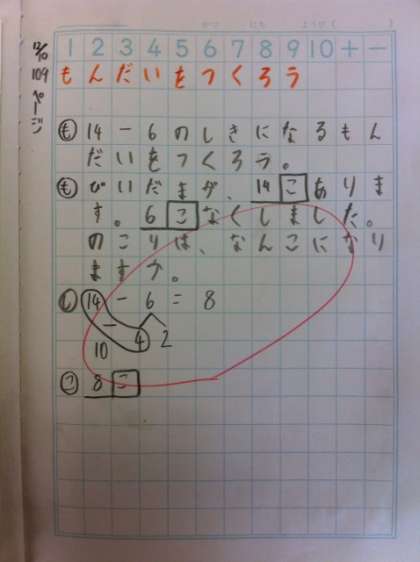 1 2 3 4 5 6 7 8 9 10 + −
12/10
109ページ
もんだいをつくろう
も 14−6のしきになるもん
だいをつくろう。
も びいだまが、14こありま
す。6こなくしました。
のこりは、なんこになり
ますか。
し 14 − 6 = 8
10 − 4 2
こ 8こ